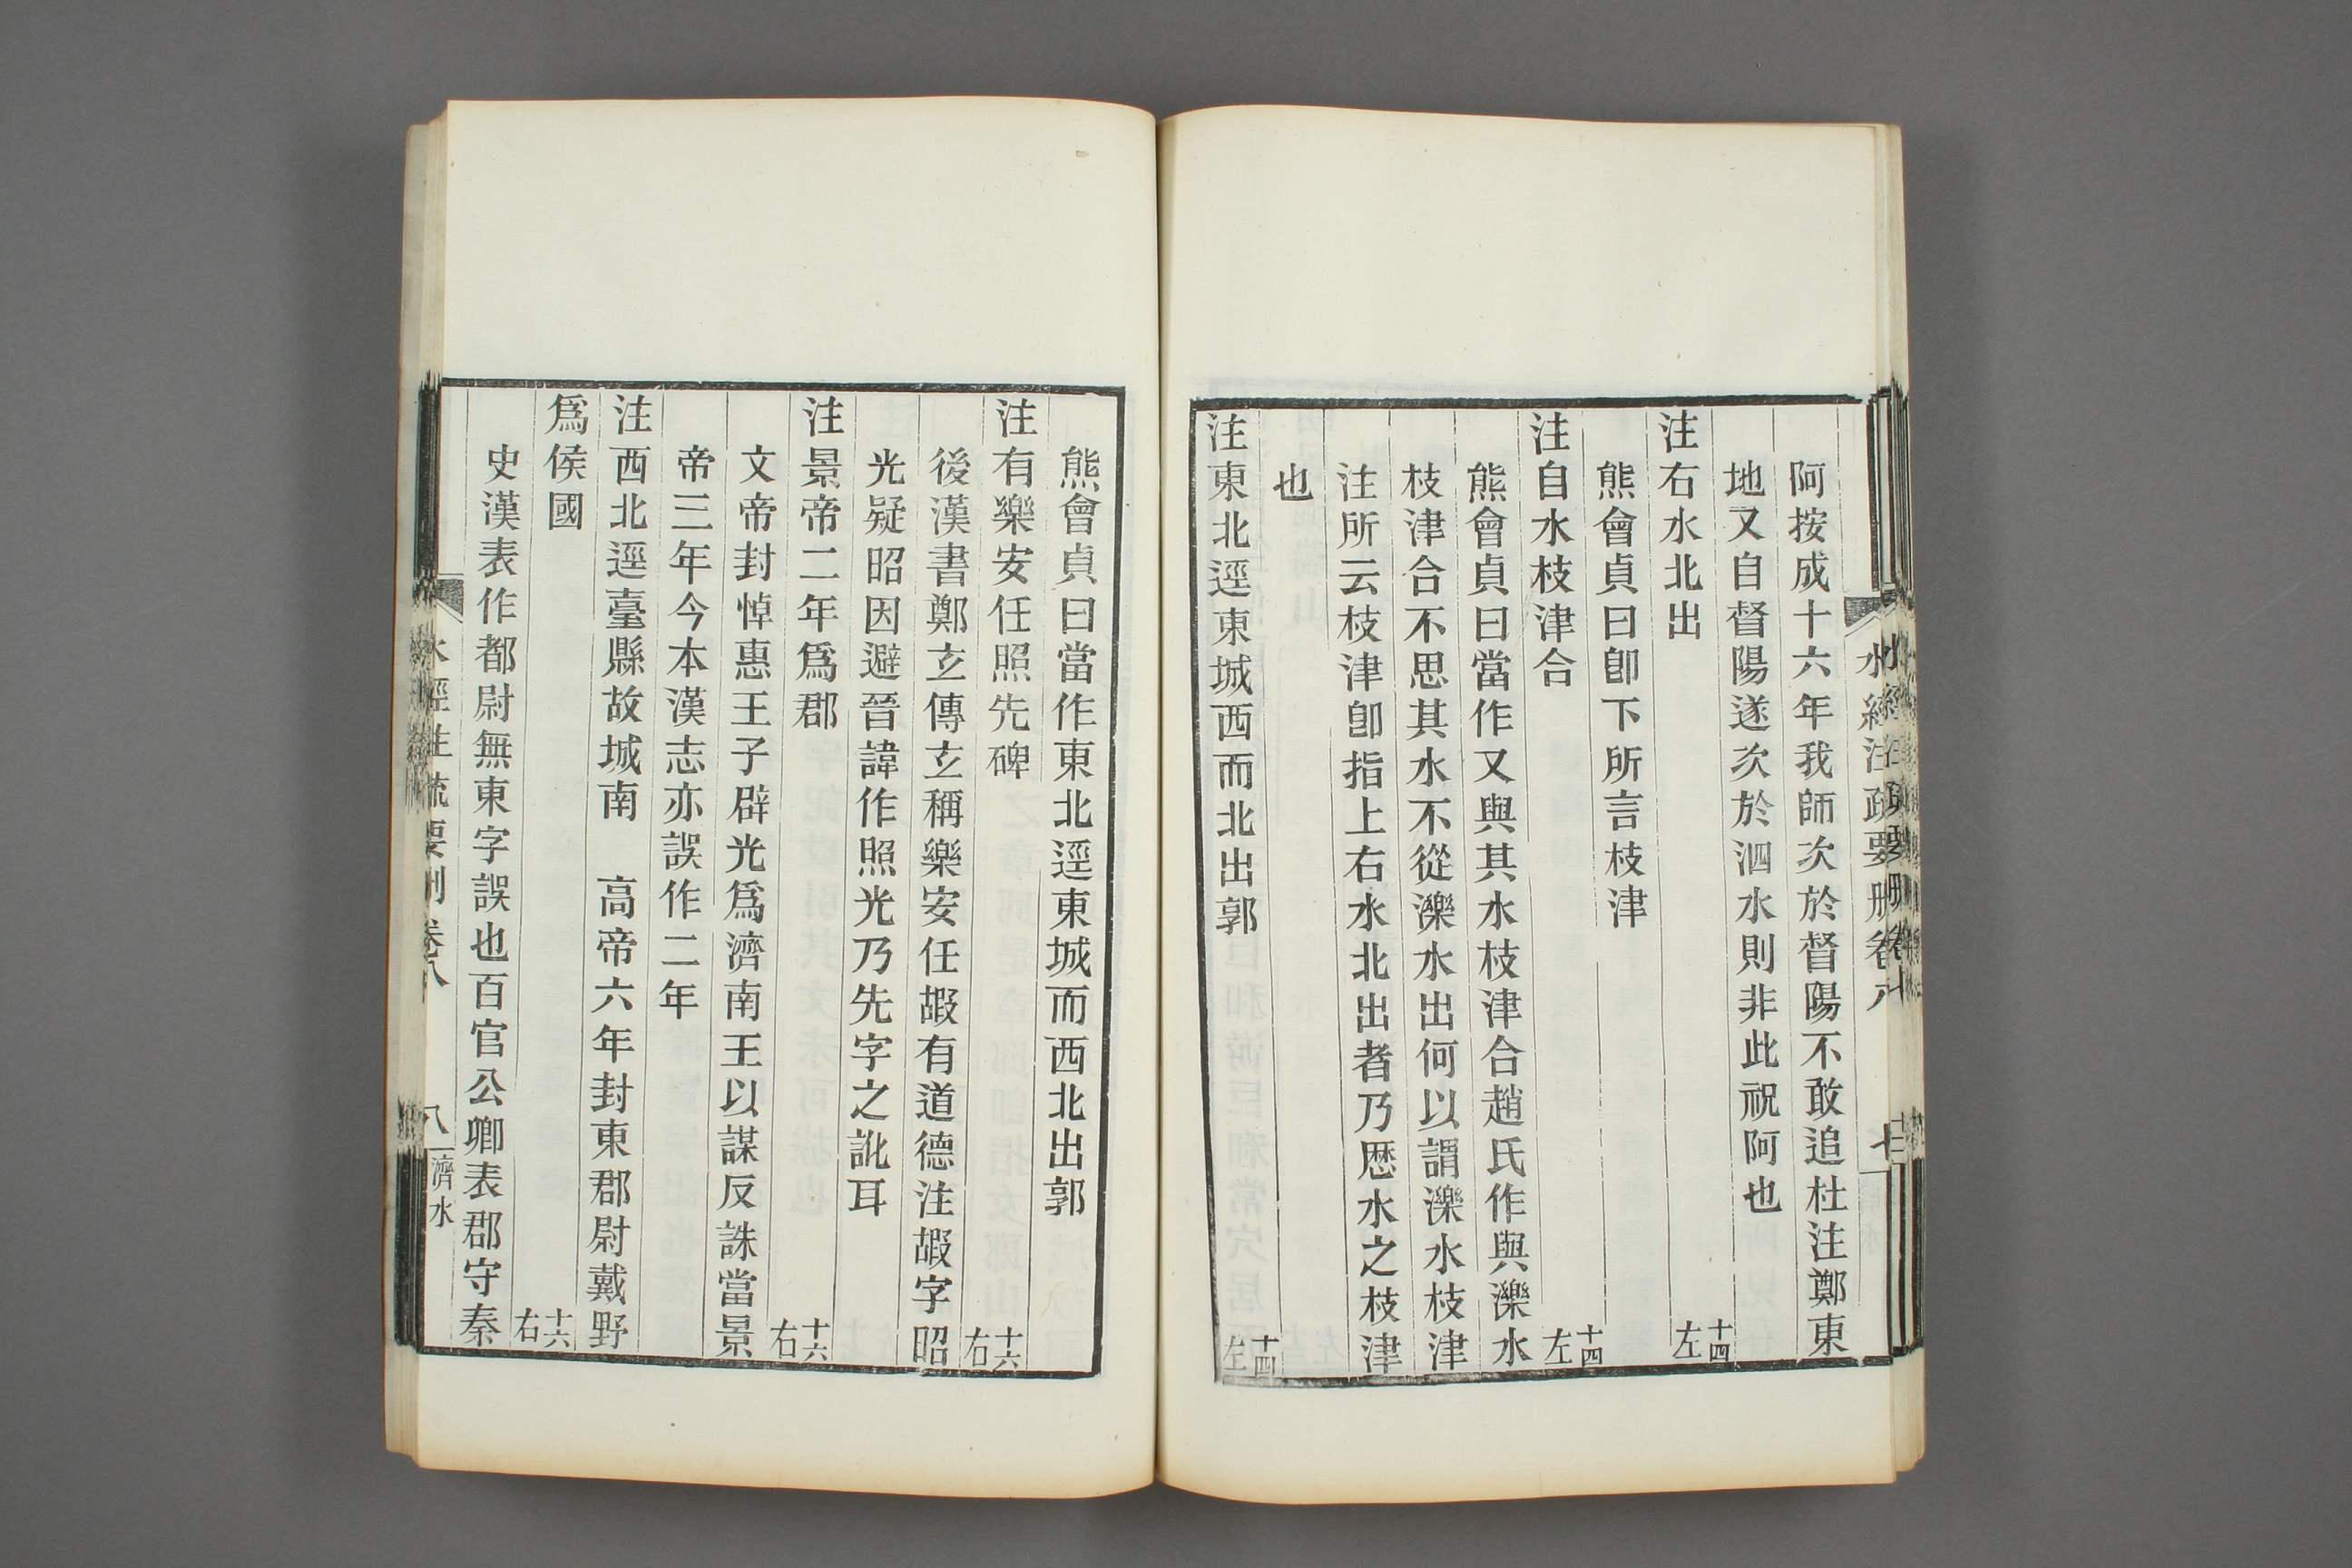 水經注疏要刪卷八
七
阿按成十六年我師次於督陽不敢追杜注鄭東
地又自督陽遂次於泗水則非此祝阿也
注右水北出 十四左
熊會貞曰卽下所言枝津
注自水枝津合 十四左
熊會貞曰當作又與其水枝津合趙氏作與濼水
枝津合不思其水不從濼水出何以謂濼水枝津
注所云枝津卽指上右水北出者乃厯水之枝津
也
注東北逕東城西而北出郭 十四左
熊會貞曰當作東北逕東城而西北出郭
注有樂安任照先碑 十六右
後漢書鄭玄傳玄稱樂安任嘏有道德注嘏字昭
光疑昭因避晉諱作照光乃先字之訛耳
注景帝二年爲郡 十六右
文帝封悼惠王子辟光爲濟南王以謀反誅當景
帝三年今本漢志亦誤作二年
注西北逕臺縣故城南 高帝六年封東郡尉戴野
爲侯國 十六右
史漢表作都尉無東字誤也百官公卿表郡守秦
水經注疏要刪卷八
八
濟水